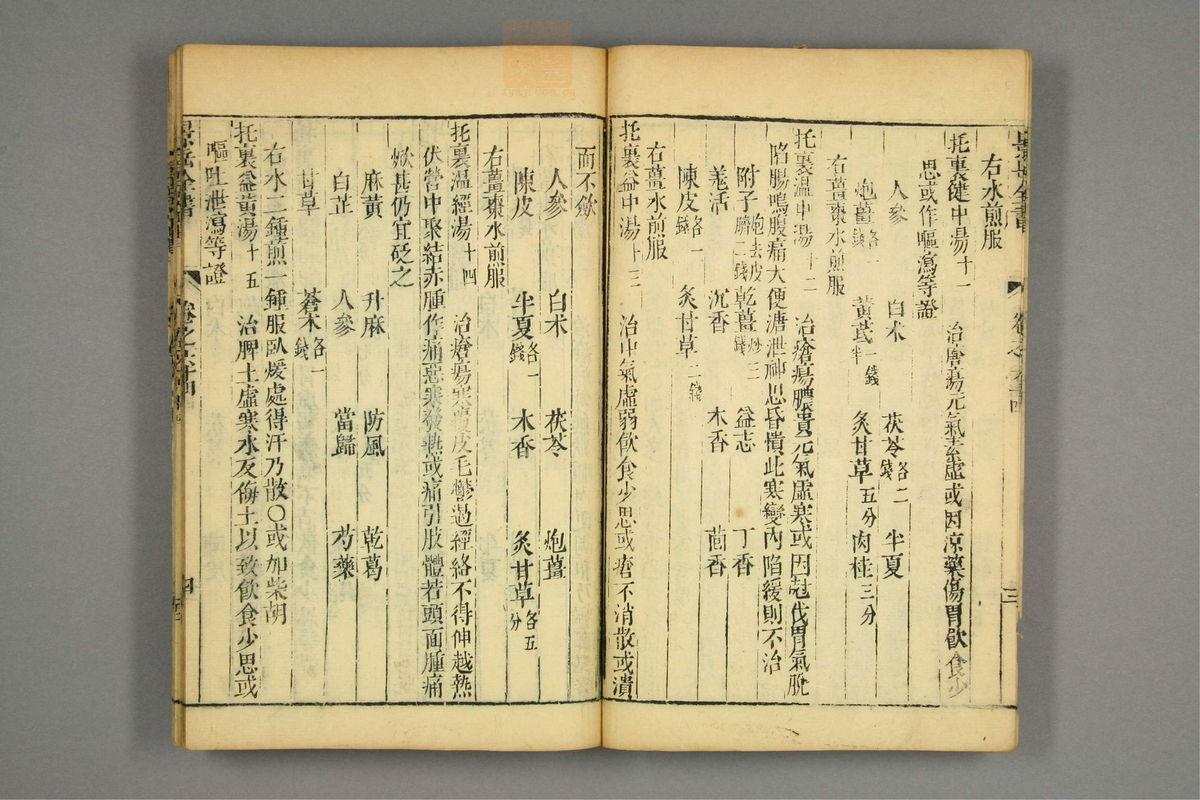 景岳全書
卷之六十四
三
右水煎服
托裏健中湯十一 治瘡瘍元氣素虛或因凉藥傷胃飲食少
思或作嘔瀉等證
人參 白术 茯苓各二錢 半夏
炮薑各一錢 黃芪一錢半 炙甘草五分 肉桂三分
右薑棗水煎服
托裏温中湯十二 治瘡瘍膿貴元氣虛寒或因尅伐胃氣脫
陷腸鳴腹痛大便溏泄神思昏憒此寒變內陷緩則不治
附子炮去皮臍二錢 乾薑炒三錢 益志 丁香
羌活 沉香 木香 茴香
陳皮各一錢 炙甘草二錢
右薑水煎服
托裏益中湯十三 治中氣虛弱飲食少思或瘡不消散或潰
而不歛
人參 白术 茯苓 炮薑
陳皮 半夏各一錢 木香 炙甘草各五分
右薑棗水煎服
托裏温經湯十四 治瘡瘍寒覆皮毛鬱遏經絡不得伸越熱
伏營中聚結赤腫作痛惡寒發熱或痛引肢體若頭面腫痛
焮甚仍宜砭之
麻黃 升麻 防風 乾葛
白芷 人參 當歸 芍藥
甘草 蒼术各一錢
右水二鍾煎一鍾服臥煖處得汗乃散〇或加柴胡
托裏益黃湯十五 治脾土虛寒水反侮土以致飲食少思或
嘔吐泄瀉等證
景岳全書
四